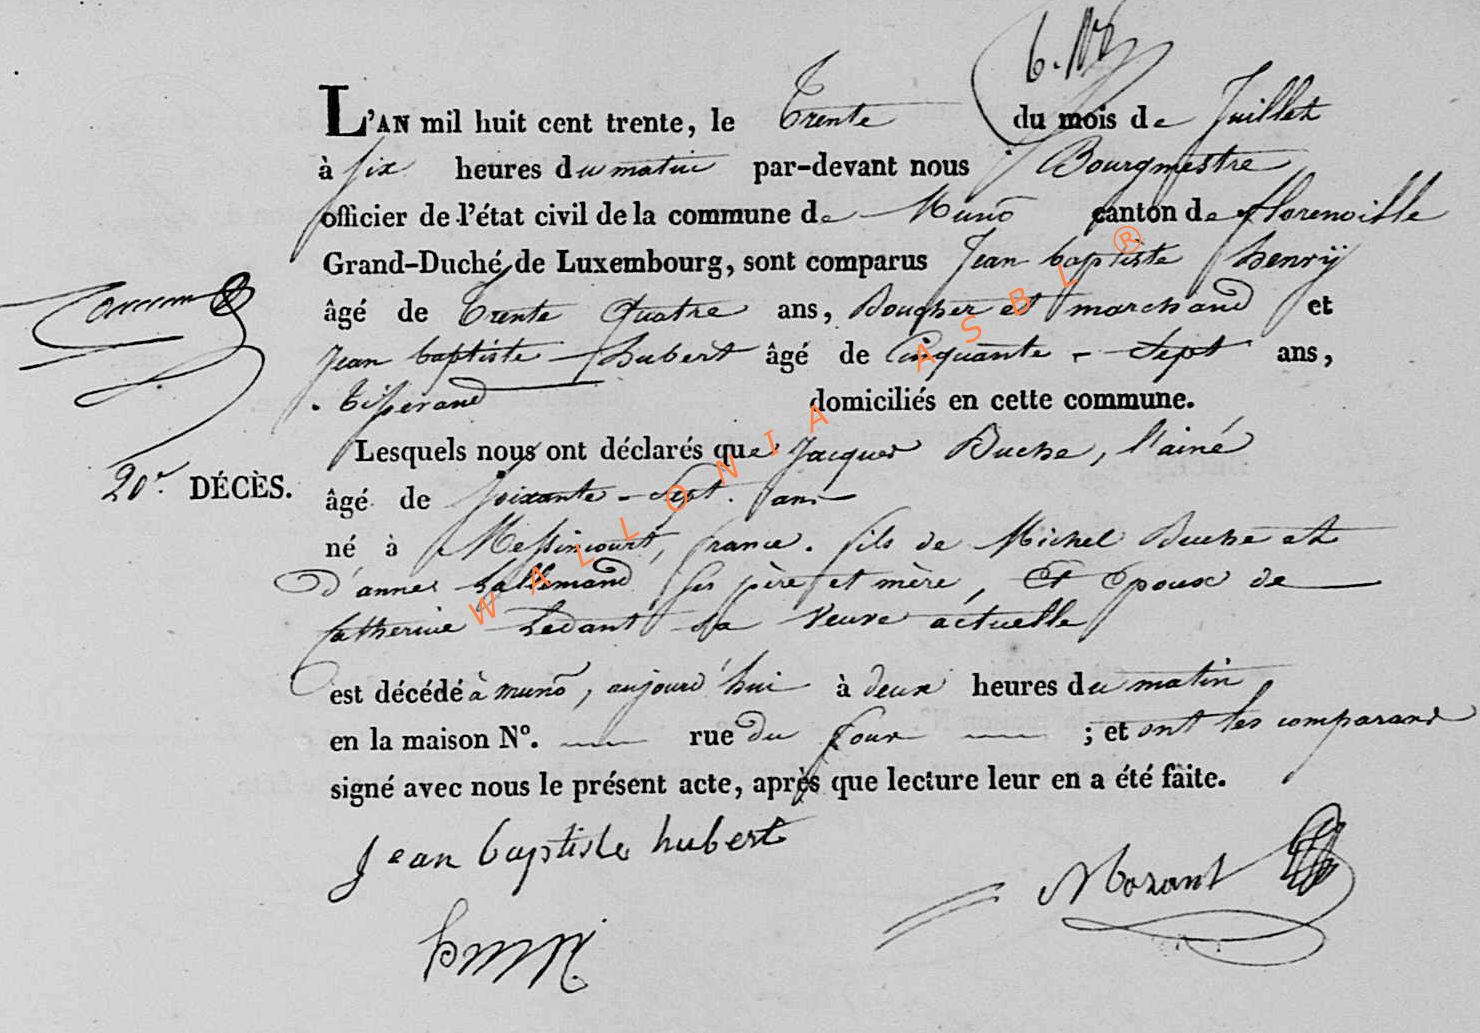 L'AN mil huit cent trente, le Trente du mois de Juillet
à six heures du matin par-devant nous Bourgmestre
officier de l'état civil de la commune de Muno canton de florenville
Grand-Duché de Luxembourg, sont comparus Jean baptiste henry
âgé de Trente Quatre ans, Boucher et marchand et
Jean baptiste hubert âgé de Cinquante-Sept ans,
Tisserand domiciliés en cette commune.
Lesquels nous ont déclarés que Jacques Buche, l'ainé
20e DÉCÈS.
âgé de soixante-Sept ans
né à Messincourt, france. fils de Michel Buche et
d'anne Lallemand ses père et mère, Et Epoux de
Catherine Ledant sa Veuve actuelle
est décédé à muno, aujourd'hui à deux heures du matin
en la maison N°. rue du four ; et ont les comparans
signé avec nous le présent acte, après que lecture leur en a été faite.
Jean baptiste hubert
Mozant
henry
WALLONIA ASBL ®